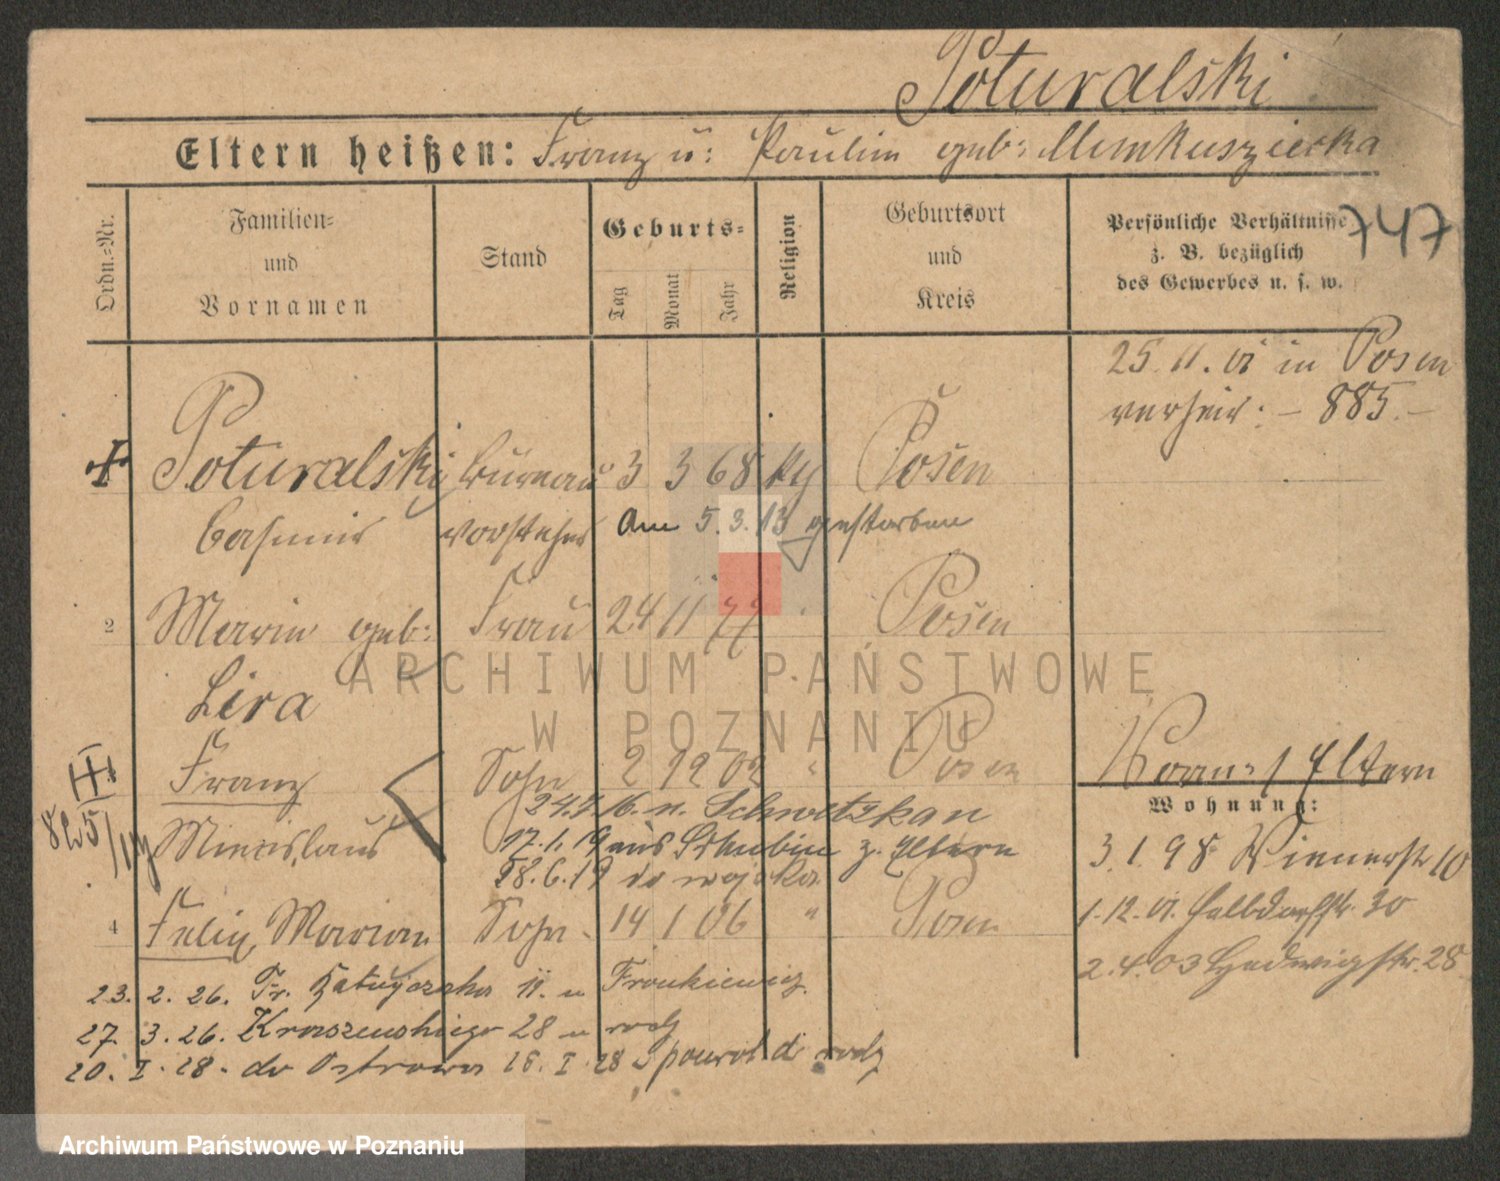 Poturalski
Eltern heißen: Franz u: Paulin geb: Mumkuszierka
747
Ordn.=Nr.
Familien=
und
Vornamen
Stand
Geburts=
Tag
Monat
Jahr
Religion
Geburtsort
und
Kreis
Persönliche Verhältnisse
z. B. bezüglich
des Gewerbes u. s. w.
25.11.01 in Posen
verheir: - 885.-
Poturalski Bureau 3 3 68 kg Posen
Casimir vorsteher Am 5.3.13 gestorben
2 Marie geb: Frau 24 11 77 " Posen
Lira
III Franz Sohn 2 12 02 " Posen
24.7.16. n. Schwetzkau
Miecislaus 17.1.19 aus Schubin z. Eltern
18.6.19 do wojska
825/14
4 Felix, Marian Sohn 14 1 06 " Posen
Eltern
Wohnung:
3.1.98 Wienerstr 10
1.12.01. Halbdorfstr. 30
2.4.03 Hedwigstr. 28
23. 2. 26. Fr. Ratajczaka 11. u Frankiewicz.
27. 3. 26. Kraszewskiego 28 u rodz
20. I. 28. do Ostrowa 26. I. 28 spowrot do rodz
ARCHIWUM PAŃSTWOWE
W POZNANIU
Archiwum Państwowe w Poznaniu